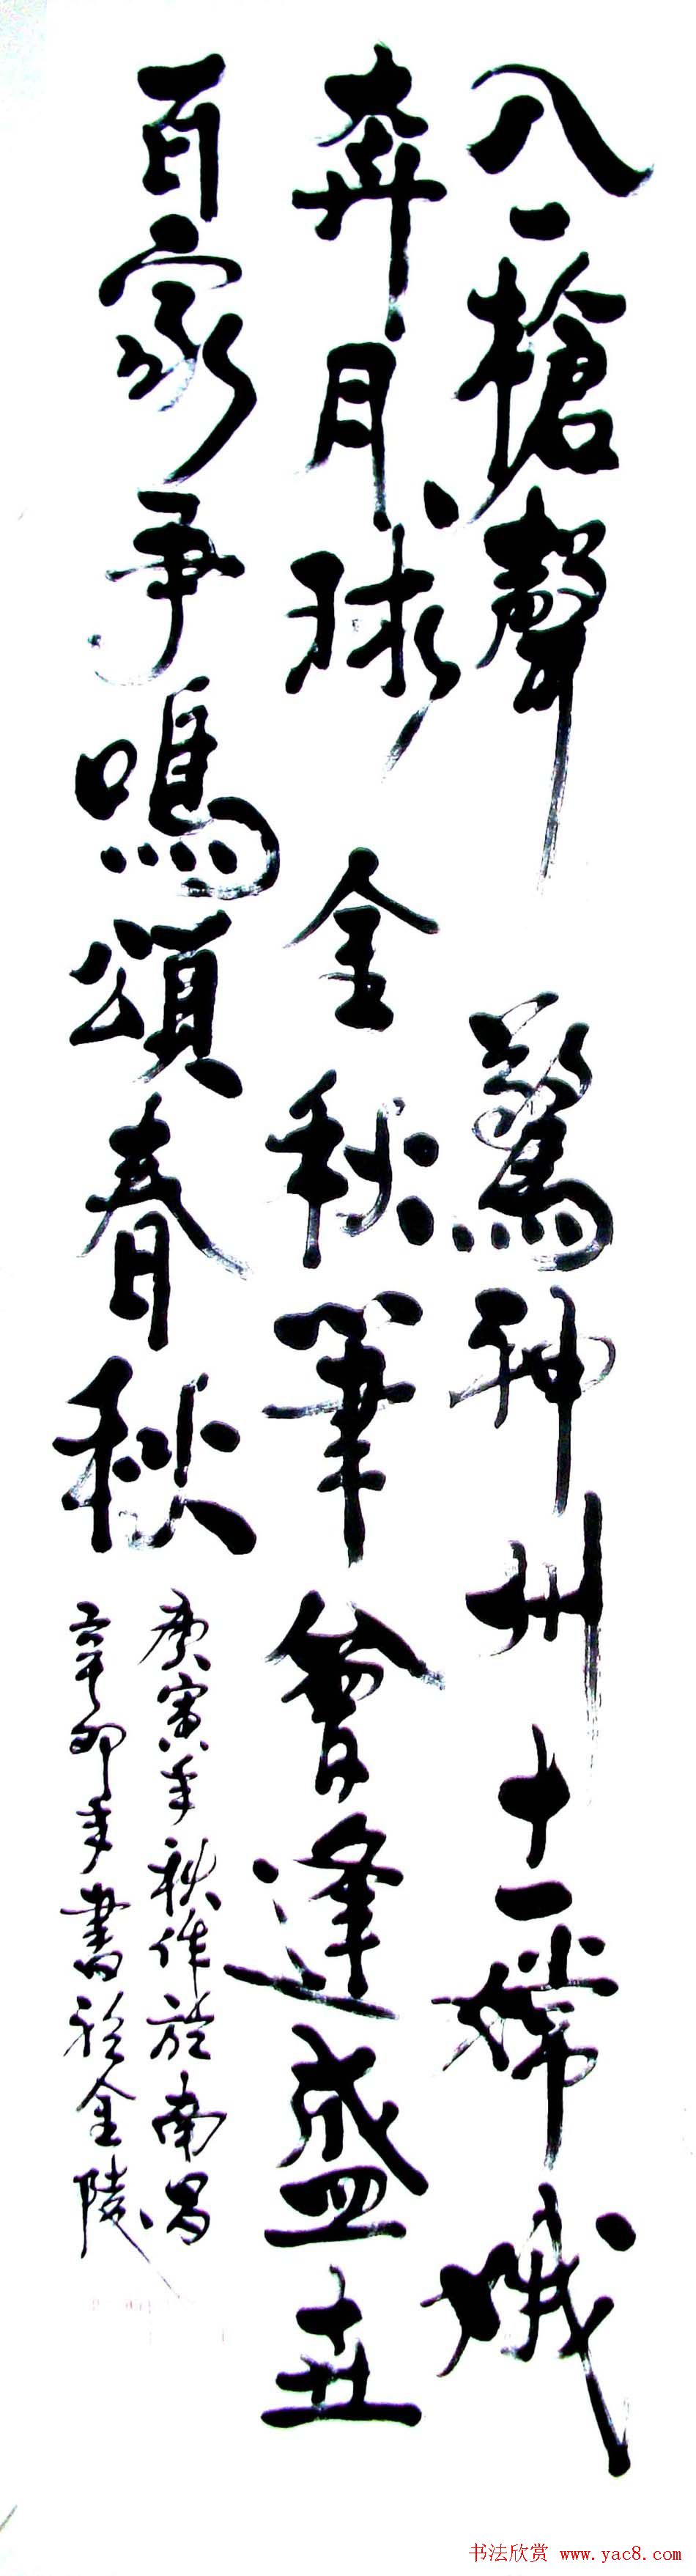 八一槍聲驚神州十一嫦娥
奔月球金秋筆會逢盛世
百家争鳴頌春秋
庚寅年秋作於南昌
辛卯年書於金陵
书法欣赏 www.yac8.com